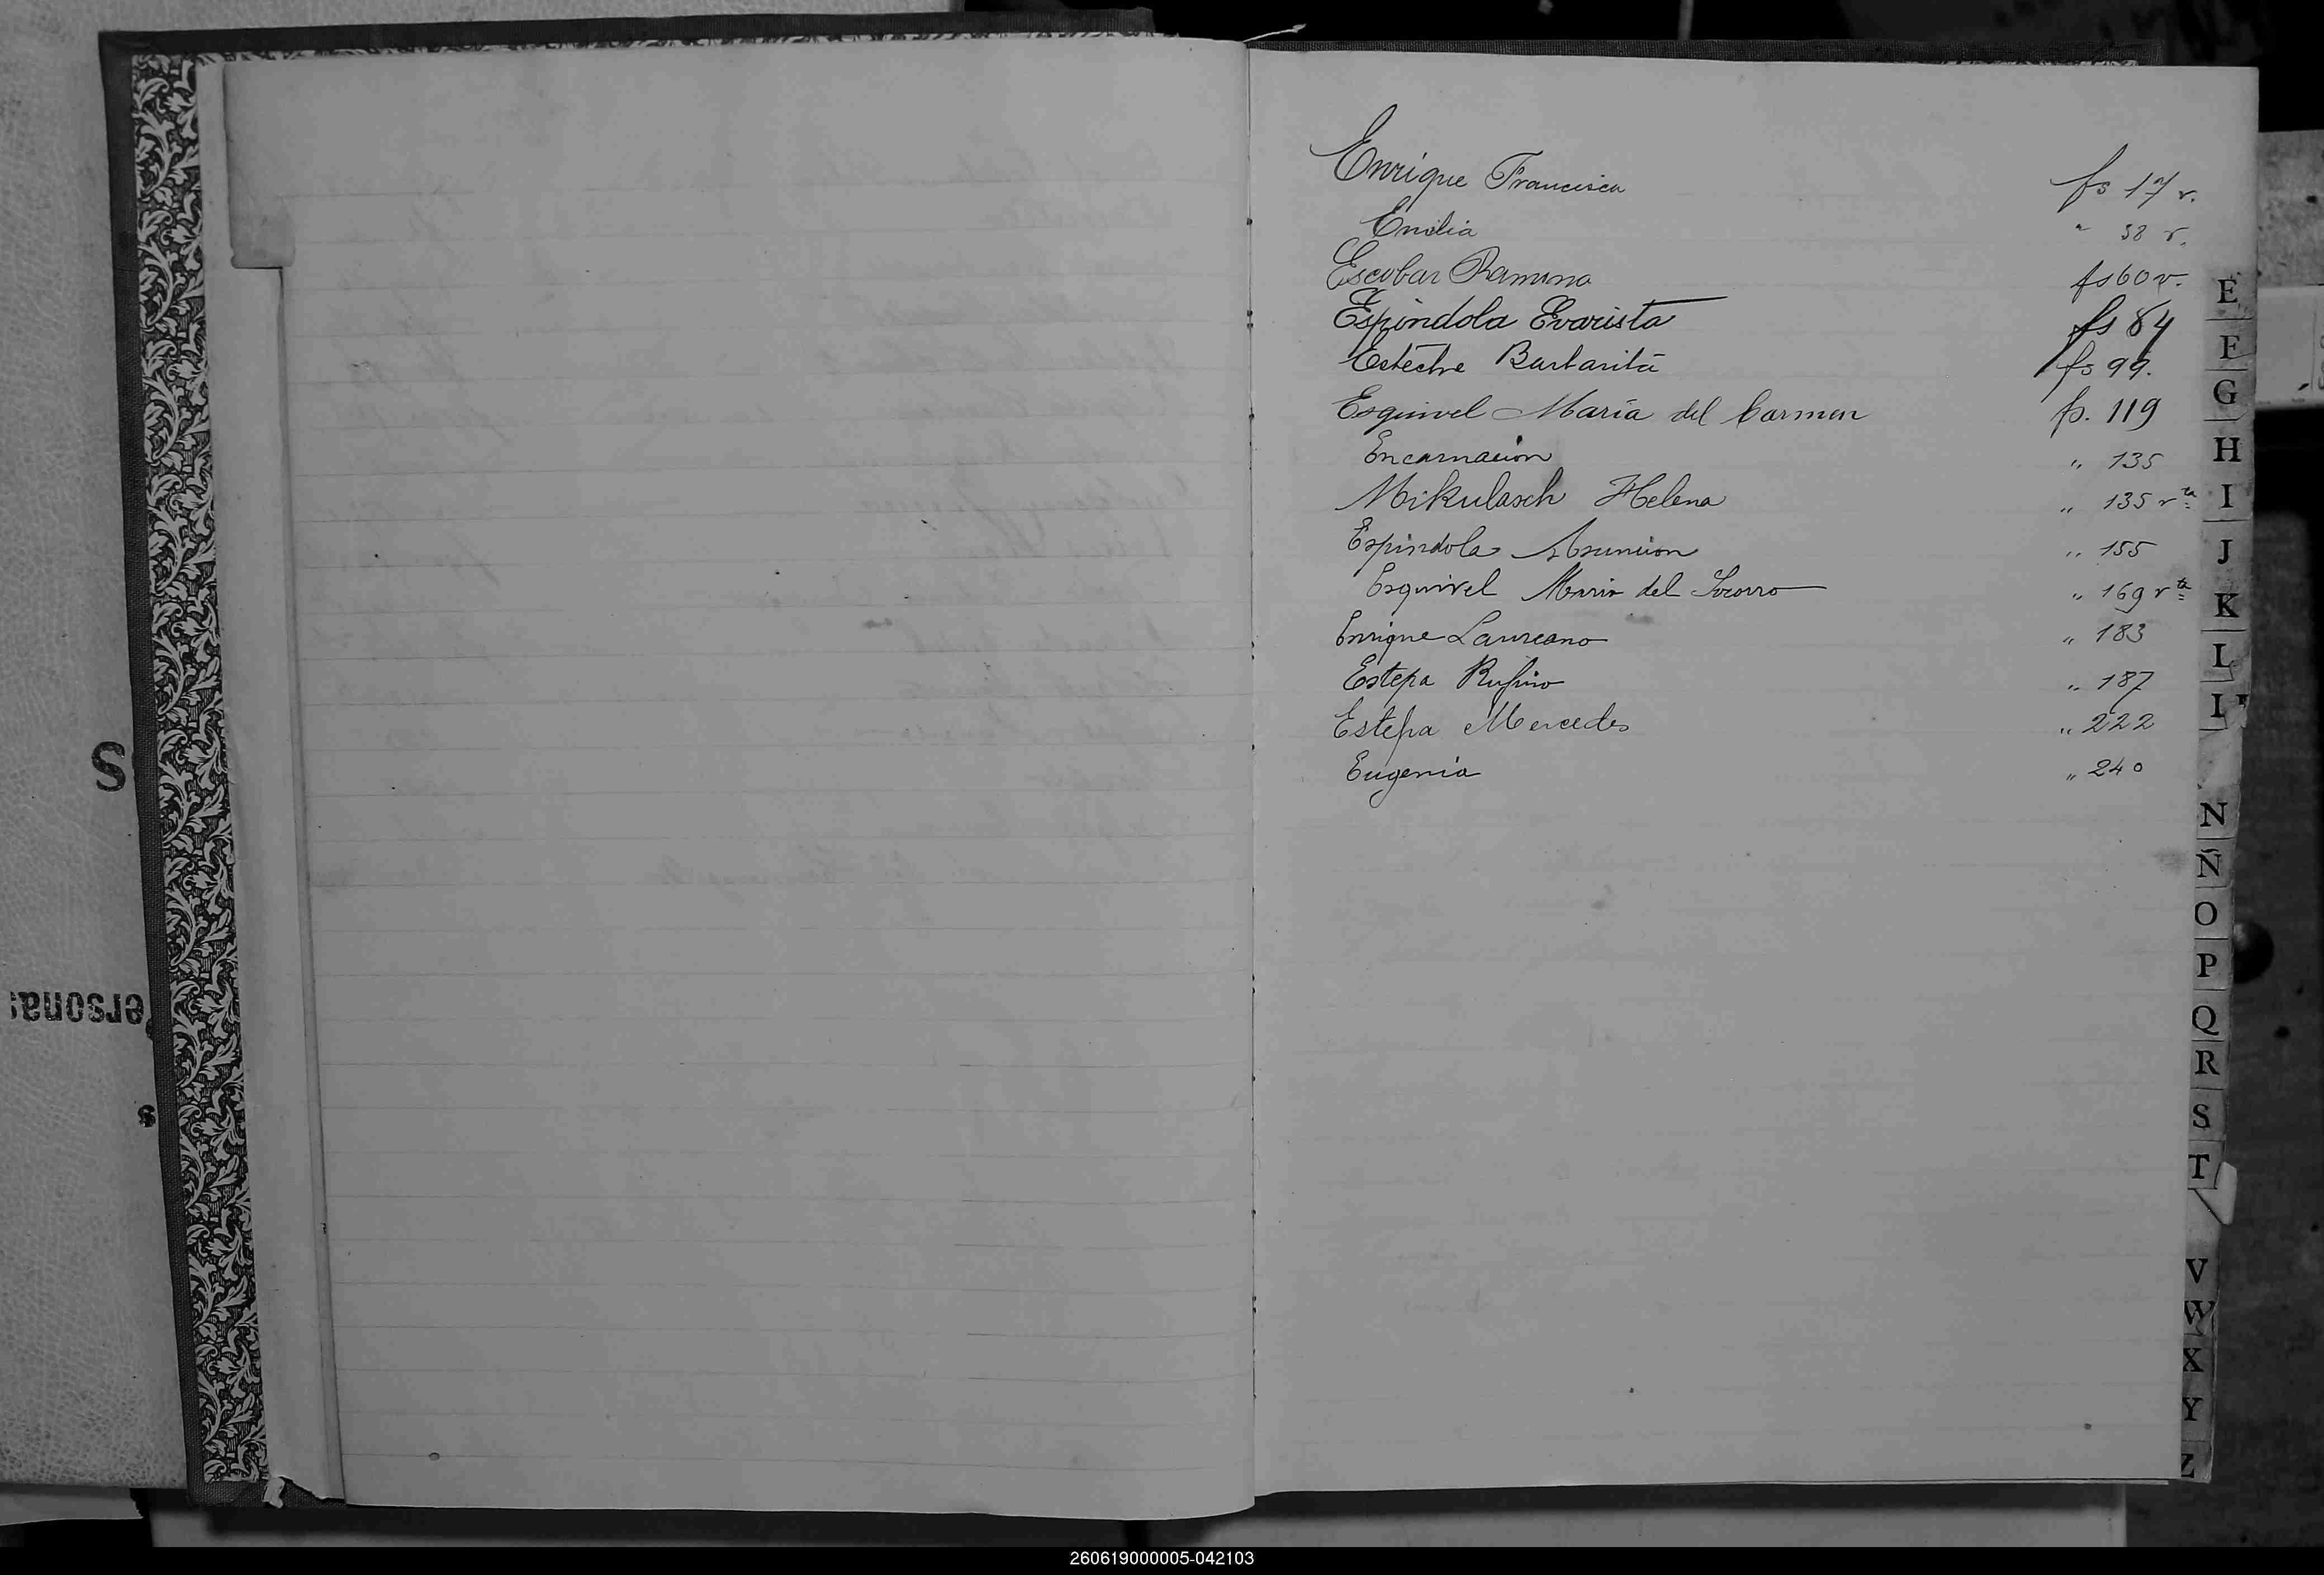 Enrique Francisca fs 17 v.
Emilia " 38 v.
Escobar Ramona fs 60 v.
Espindola Evarista fs 84
Esteche Barbarita fs 99.
Esquivel María del Carmen fs. 119
Encarnacion " 135
Mikulasch Helena " 135 vta
Espindola Asuncion " 155
Esquivel Maria del Socorro " 169 vta
Enrique Laureano " 183
Estepa Rufino " 187
Estepa Mercedes " 222
Eugenia " 240
E
F
G
H
I
J
K
L
N
Ñ
O
P
Q
R
S
T
V
W
X
Y
Z
S
ersonas
s
260619000005-042103